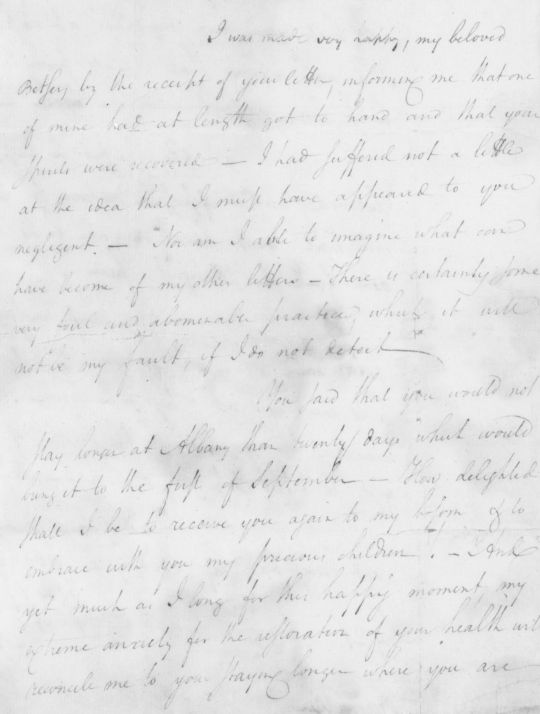 I was made very happy, my beloved
Betsey by the receipt of your letter, informing me that one
of mine had at length got to hand and that your
spirits were recovered — I had suffered not a little
at the idea that I must have appeared to you
negligent. — Nor am I able to imagine what can
have become of my other letters — There is certainly some
very foul and abominable practice, which it will
not be my fault, if I do not detect
You said that you would not
stay longer at Albany than twenty days which would
bring it to the first of September — How delighted
shall I be to receive you again to my bosom & to
embrace with you my precious children! — And
yet much as I long for this happy moment, my
extreme anxiety for the restoration of your health will
reconcile me to your staying longer where you are